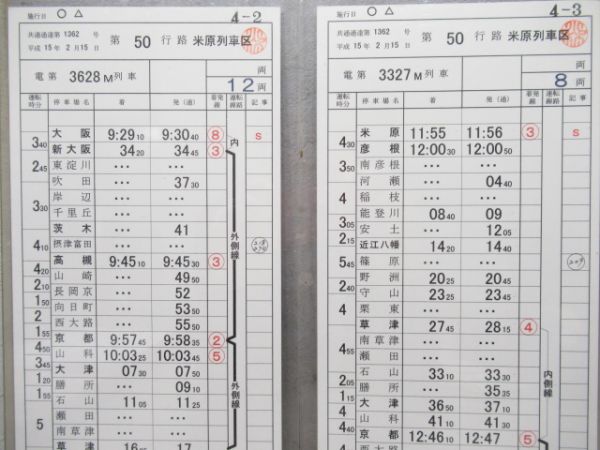 施行日 ○ △ 4-2
共通過達第1362号
平成15年2月15日
第 50 行路 米原列車区
電第 3628M列車
両
12両
運転時分 停車場名 着 発(通) 着発線 運転線路 記事
大阪 9:29 10 9:30 40 ⑧ 内 s
3 40 新大阪 34 20 34 45 ③
2 45 東淀川 ・・・ ・・・
吹田 37 30
岸辺 ・・・ ・・・
3 30 千里丘 ・・・ ・・・
茨木 ・・・ 41
4 10 摂津富田 ・・・ ・・・
高槻 9:45 10 9:45 30 ③ 外側線
4 20 山崎 ・・・ 49 50
2 10 長岡京 ・・・ 52
1 50 向日町 ・・・ 53 50
2 西大路 ・・・ 55 50
1 55 京都 9:57 45 9:58 35 ②
4 50 山科 10:03 25 10:03 45 ⑤
大津 07 30 07 50
1 20 膳所 ・・・ 09 10
石山 11 05 11 25 外側線
5 瀬田 ・・・ ・・・
南草津 ・・・ ・・・
草津 16 17
施行日 ○ △ 4-3
共通過達第1362号
平成15年2月15日
第 50 行路 米原列車区
電第 3327M列車
両
8両
運転時分 停車場名 着 発(通) 着発線 運転線路 記事
米原 11:55 11:56 ③ s
4 30 彦根 12:00 30 12:00 50
3 50 南彦根 ・・・ ・・・
河瀬 04 40
4 稲枝 ・・・ ・・・
能登川 08 40 09
3 05 安土 ・・・ 12 05
2 15 近江八幡 14 20 14 40
5 45 篠原 ・・・ ・・・
野洲 20 25 20 45
2 40 守山 23 25 23 45
4 栗東 ・・・ ・・・
草津 27 45 28 15 ④
南草津 ・・・ ・・・
4 55 瀬田 ・・・ ・・・
石山 33 10 33 30 内側線
2 05 膳所 ・・・ ・・・
大津 36 50 37 10
4 山科 41 10 41 30
京都 12:46 10 12:47 ⑤